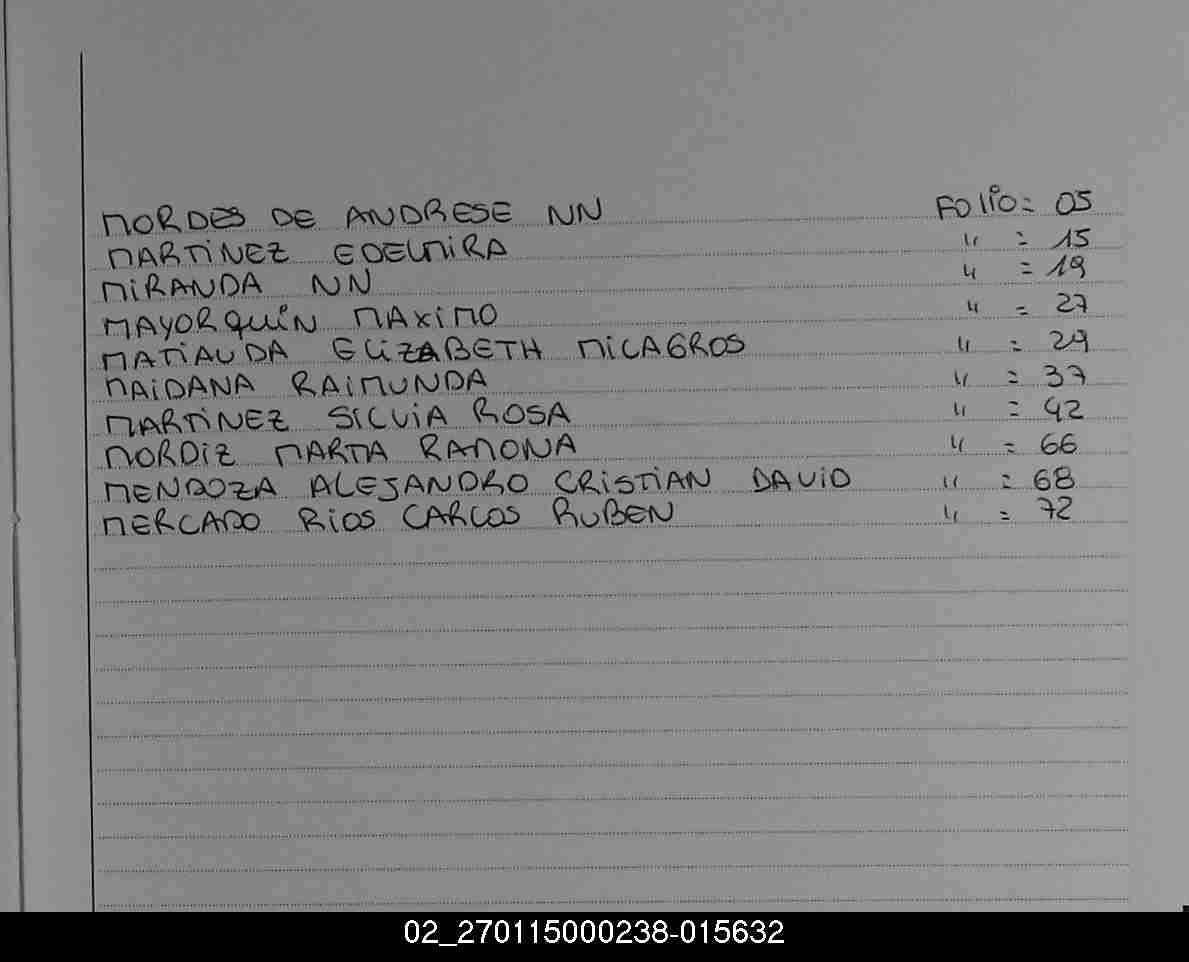 MORDES DE ANDRESE NN FOLIO= 05
MARTINEZ EDELMIRA " = 15
MIRANDA NN " = 19
MAYORQUIN MAXIMO " = 27
MATIAUDA ELIZABETH MILAGROS " = 29
MAIDANA RAIMUNDA " = 37
MARTINEZ SILVIA ROSA " = 42
MORDIZ MARTA RAMONA " = 66
MENDOZA ALEJANDRO CRISTIAN DAVID " = 68
MERCADO RIOS CARLOS RUBEN " = 72
02_270115000238-015632